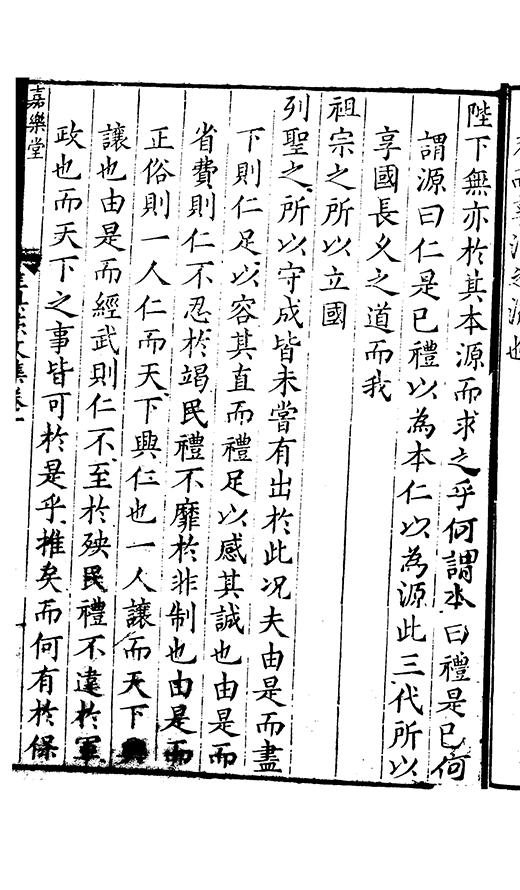 陛下無亦於其本源而求之乎何謂本曰禮是已何
謂源曰仁是已禮以為本仁以為源此三代所以
享國長久之道而我
祖宗之所以立國
列聖之所以守成皆未嘗有出於此况夫由是而盡
下則仁足以容其直而禮足以感其誠也由是而
省費則仁不忍於竭民禮不靡於非制也由是而
正俗則一人仁而天下興仁也一人讓而天下興
讓也由是而經武則仁不至於殃民禮不違於軍
政也而天下之事皆可於是乎推矣而何有於保
嘉樂堂
文集卷一